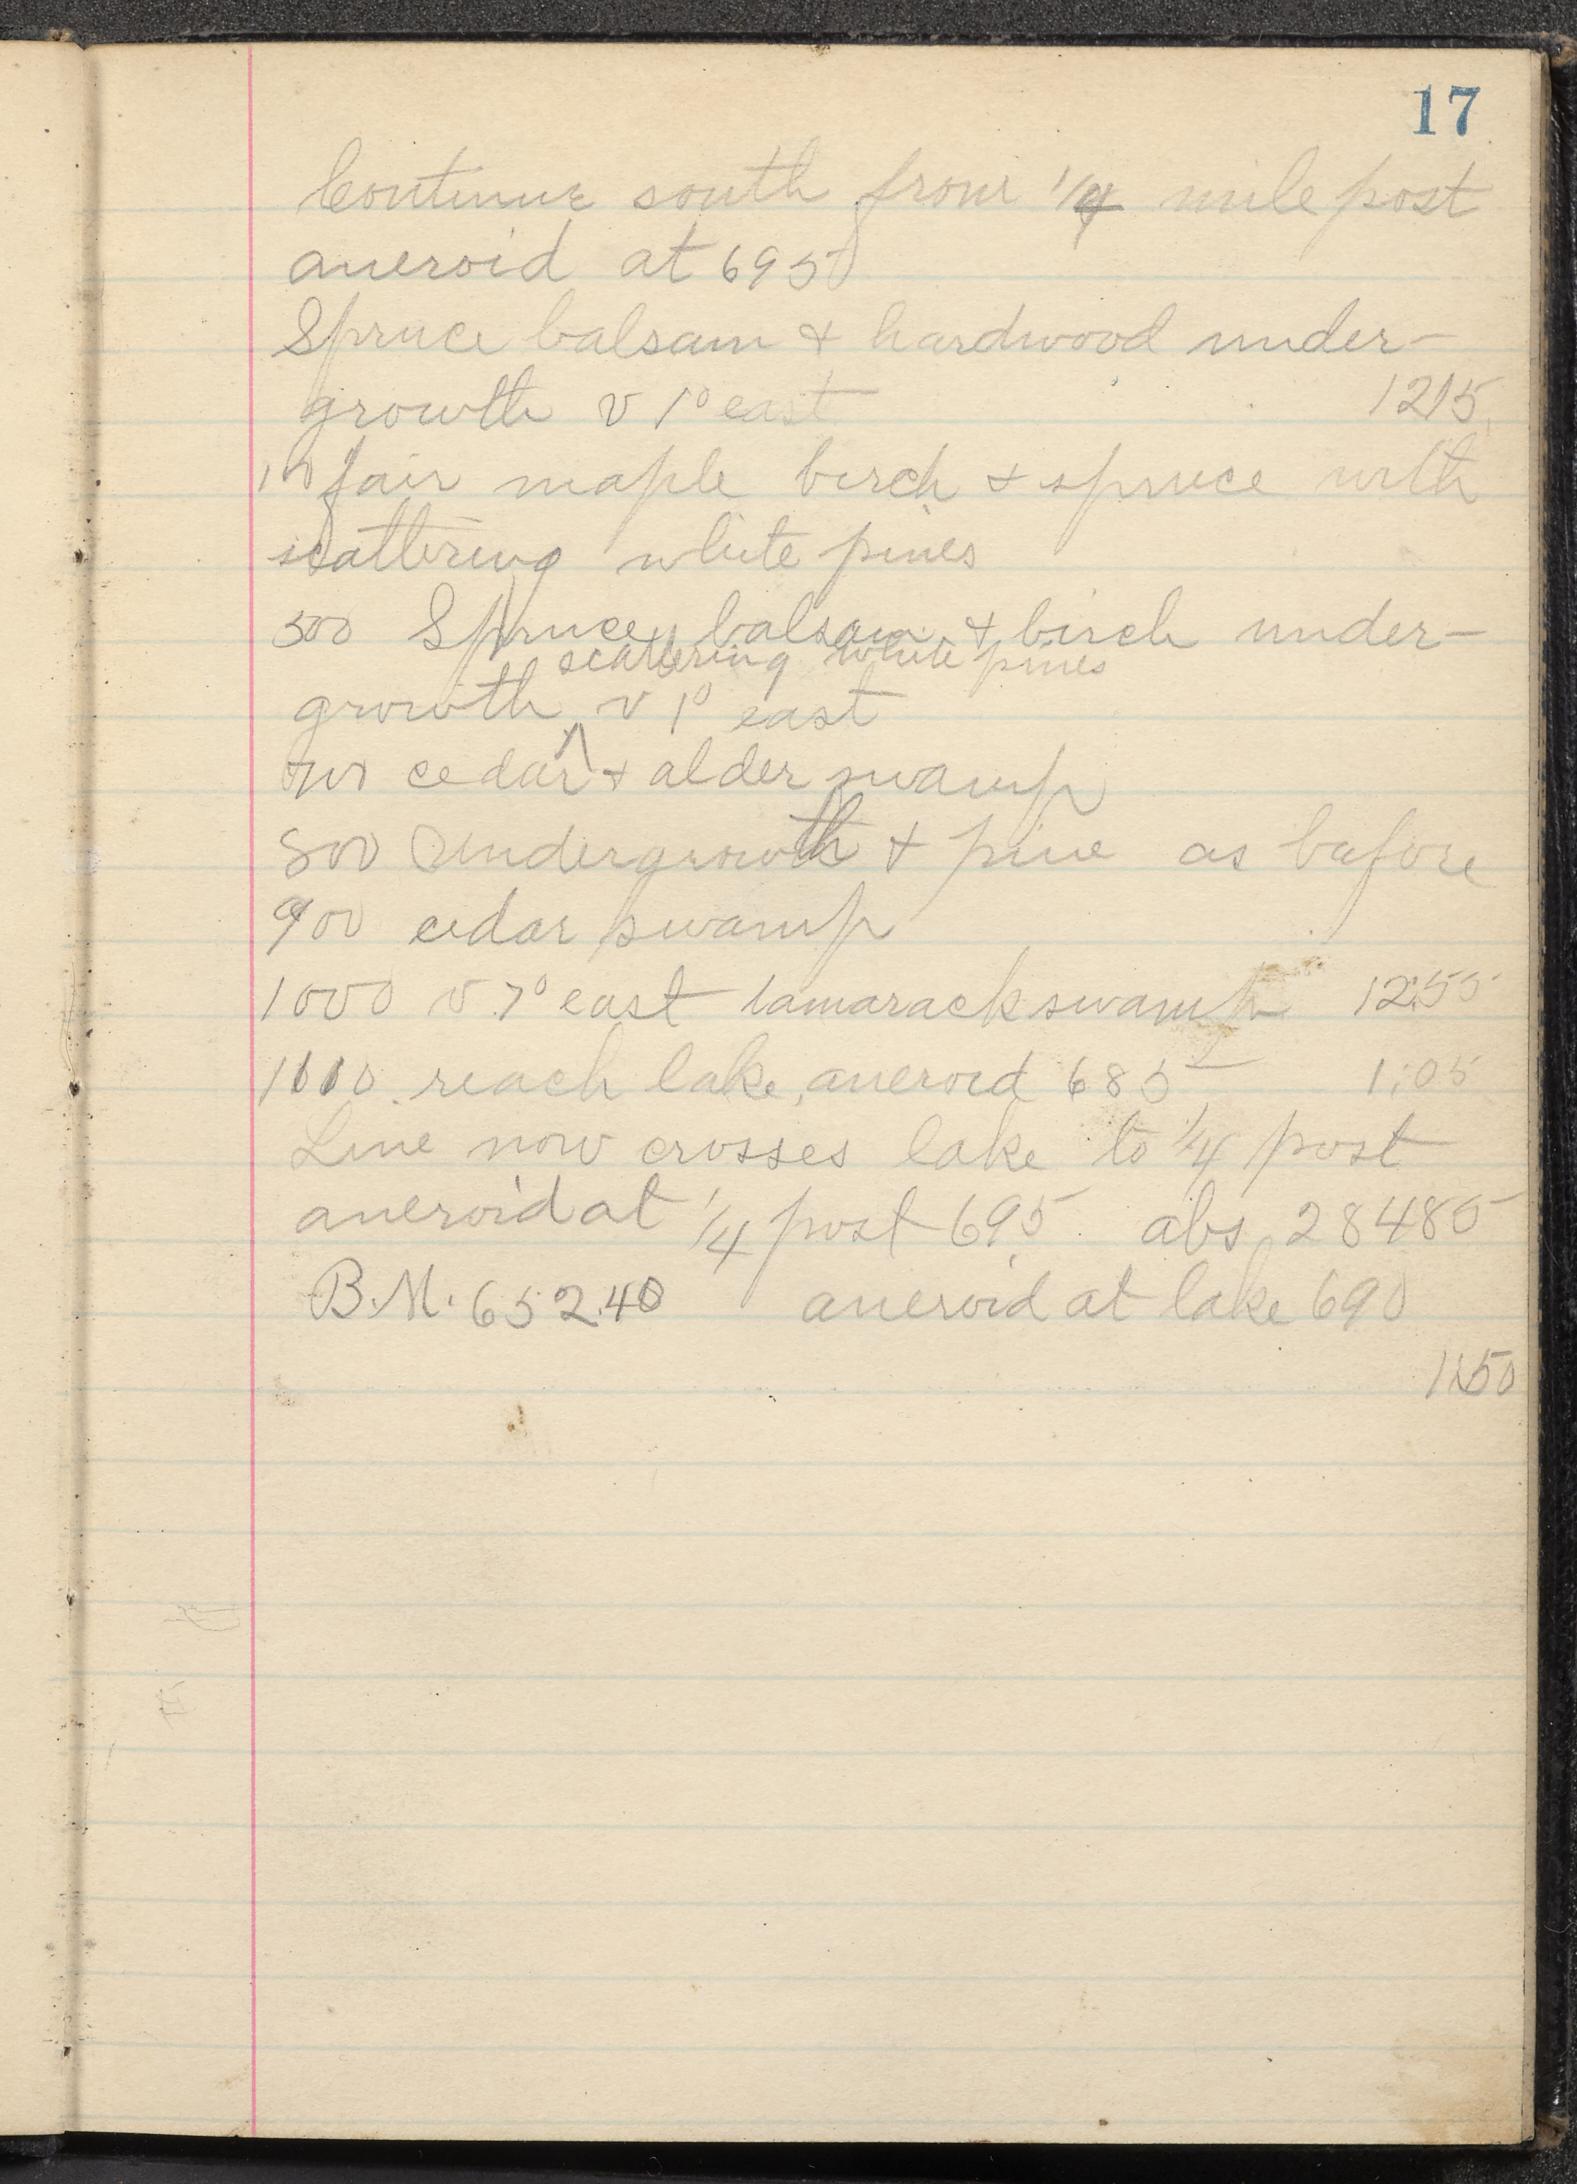 17
Continue south from 1/4 mile post
aneroid at 695
Spruce balsam & hardwood under-
growth v 1° east 1215
fair maple birch & spruce with
scattering white pines
500 Spruce, balsam & birch under-
scattering white pines
growth ^ v 1° east
700 cedar & alder swamp
800 Undergrowth & pine as before
900 cedar swamp
1000 v 7° east tamarack swamp 12:55
1110 reach lake, aneroid 685 1:05
Line now crosses lake to 1/4 post
aneroid at 1/4 post 695 abs 28485
B.M. 652.40 aneroid at lake 690
1:50